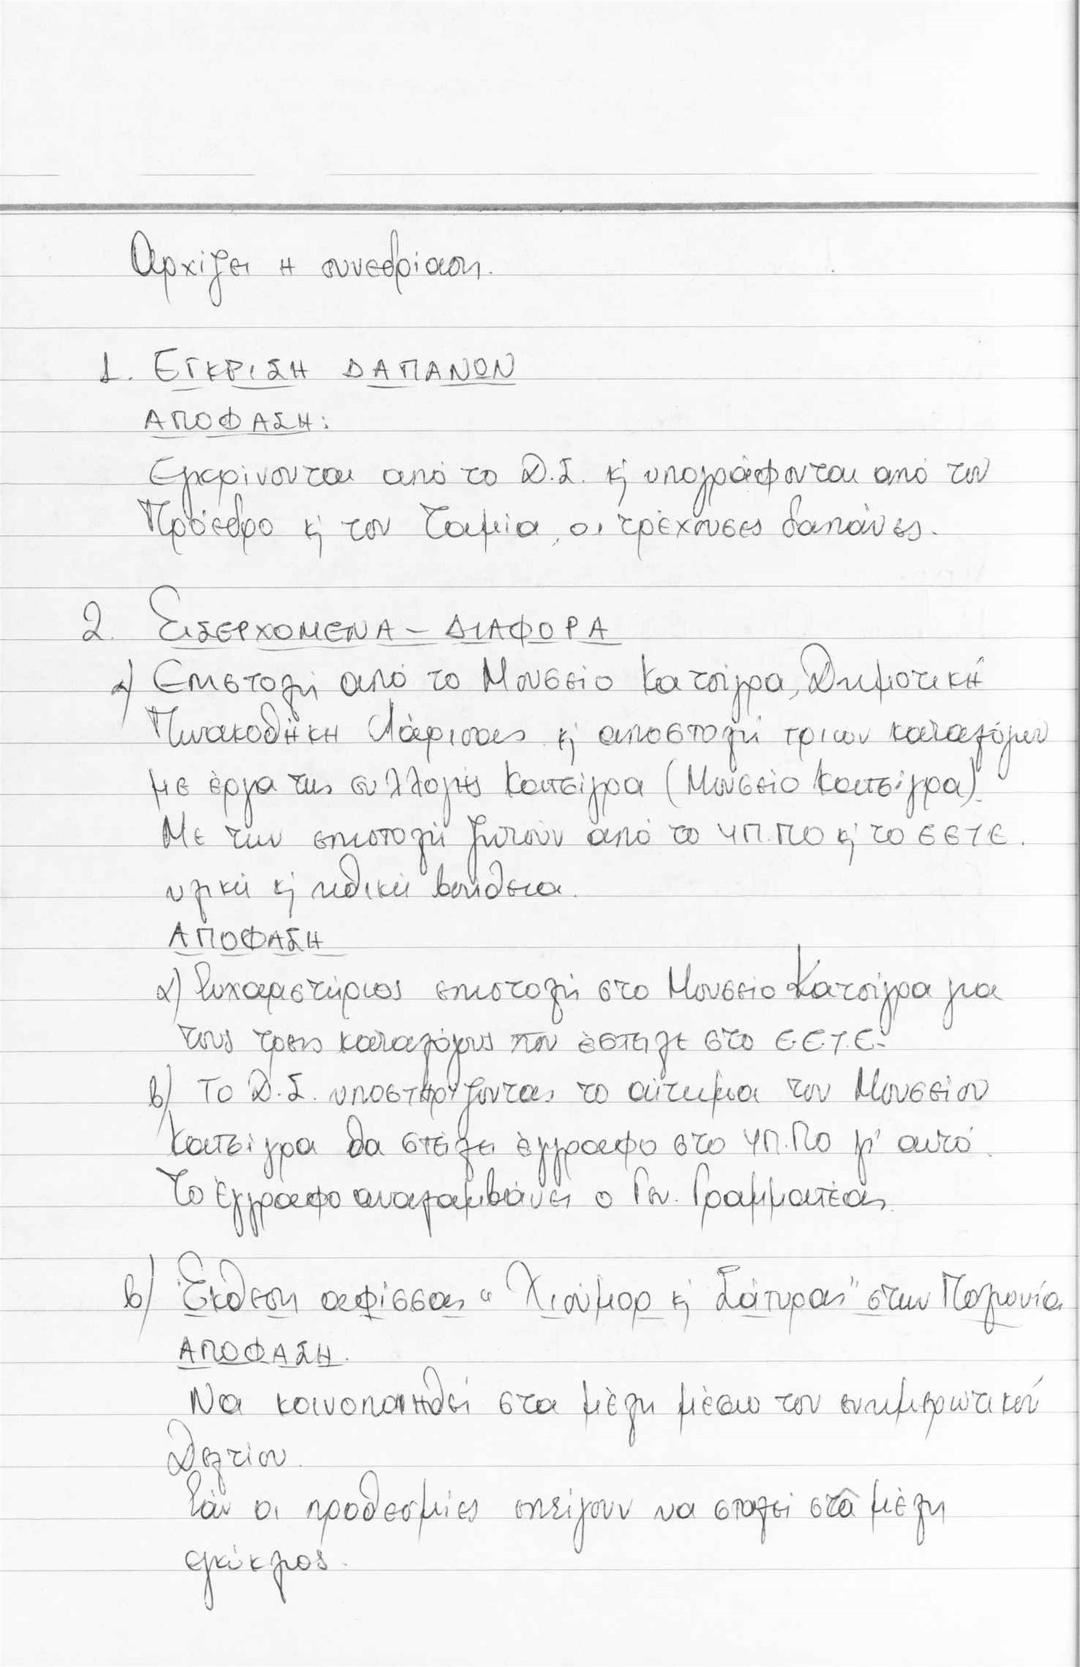 Αρχίζει η συνεδρίαση.
1. ΕΓΚΡΙΣΗ ΔΑΠΑΝΩΝ
ΑΠΟΦΑΣΗ:
Εγκρίνονται από το Δ.Σ. κ' υπογράφονται από τον
Πρόεδρο κ' τον Ταμία, οι τρέχουσες δαπάνες.
2. ΕΙΣΕΡΧΟΜΕΝΑ - ΔΙΑΦΟΡΑ
α) Επιστολή από το Μουσείο Κατσίγρα, Δημοτική
Πινακοθήκη Λάρισας κ' αποστολή τριών καταλόγων
με έργα της συλλογής Κατσίγρα (Μουσείο Κατσίγρα).
Με την επιστολή ζητούν από το ΥΠ.ΠΟ κ' το ΕΕΤΕ.
υλική κ' ηθική βοήθεια.
ΑΠΟΦΑΣΗ
α) Ευχαριστήριος επιστολή στο Μουσείο Κατσίγρα για
τους τρεις καταλόγους που έστειλε στο Ε.Ε.Τ.Ε.
β) Το Δ.Σ. υποστηρίζοντας το αίτημα του Μουσείου
Κατσίγρα θα στείλει έγγραφο στο ΥΠ.ΠΟ γι' αυτό.
Το έγγραφο αναλαμβάνει ο Γεν. Γραμματέας.
β) Έκθεση αφίσσας "Χιούμορ κ' Σάτυρας" στην Πολωνία
ΑΠΟΦΑΣΗ.
Να κοινοποιηθεί στα μέλη μέσω του ενημερωτικού
Δελτίου.
Εάν οι προθεσμίες επείγουν να σταλεί στα μέλη
εγκύκλιος.